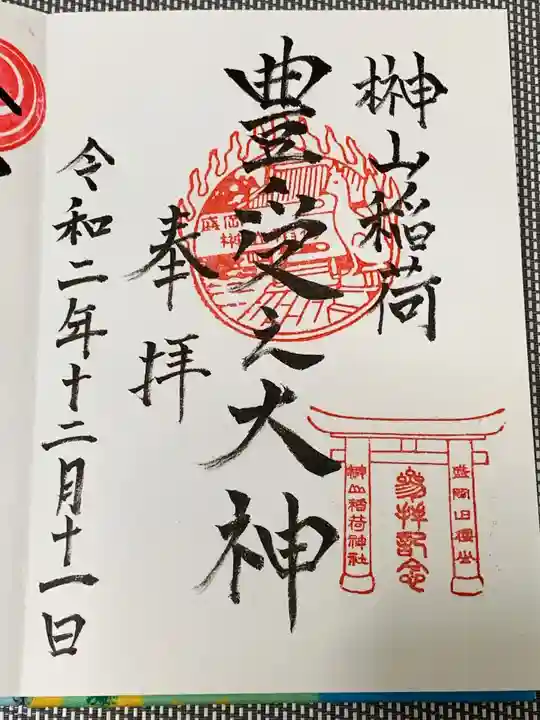 榊山稲荷
豊受之大神
奉拝
令和二年十二月十一日
参拝記念
榊山稲荷神社
盛岡